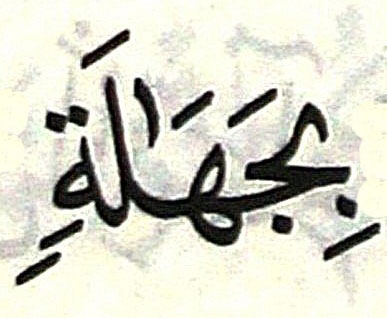 بِجَهَٰلَةٍ